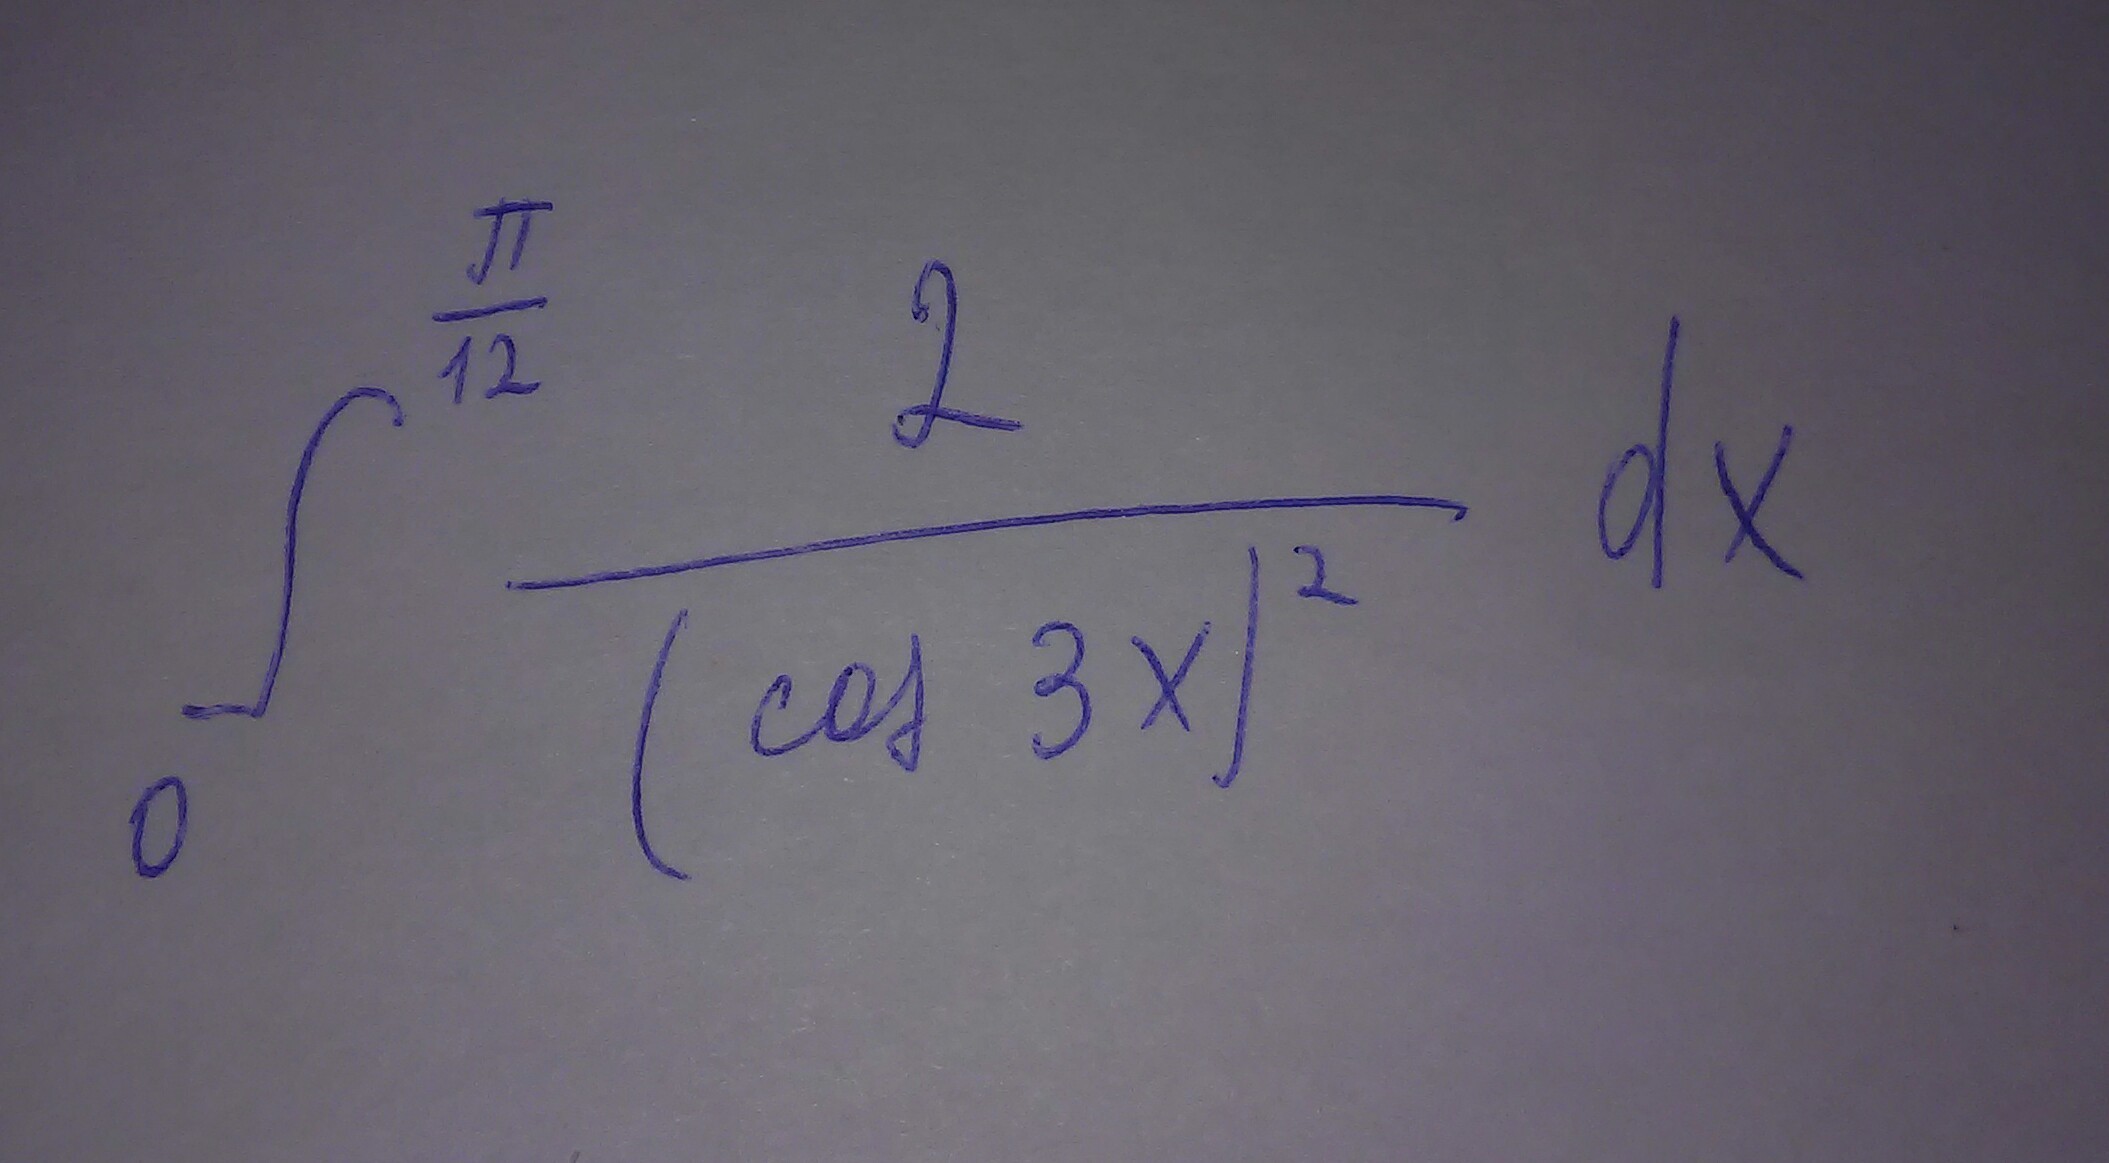 ∫_0^{π/12} 2/(cos 3x)^2 dx